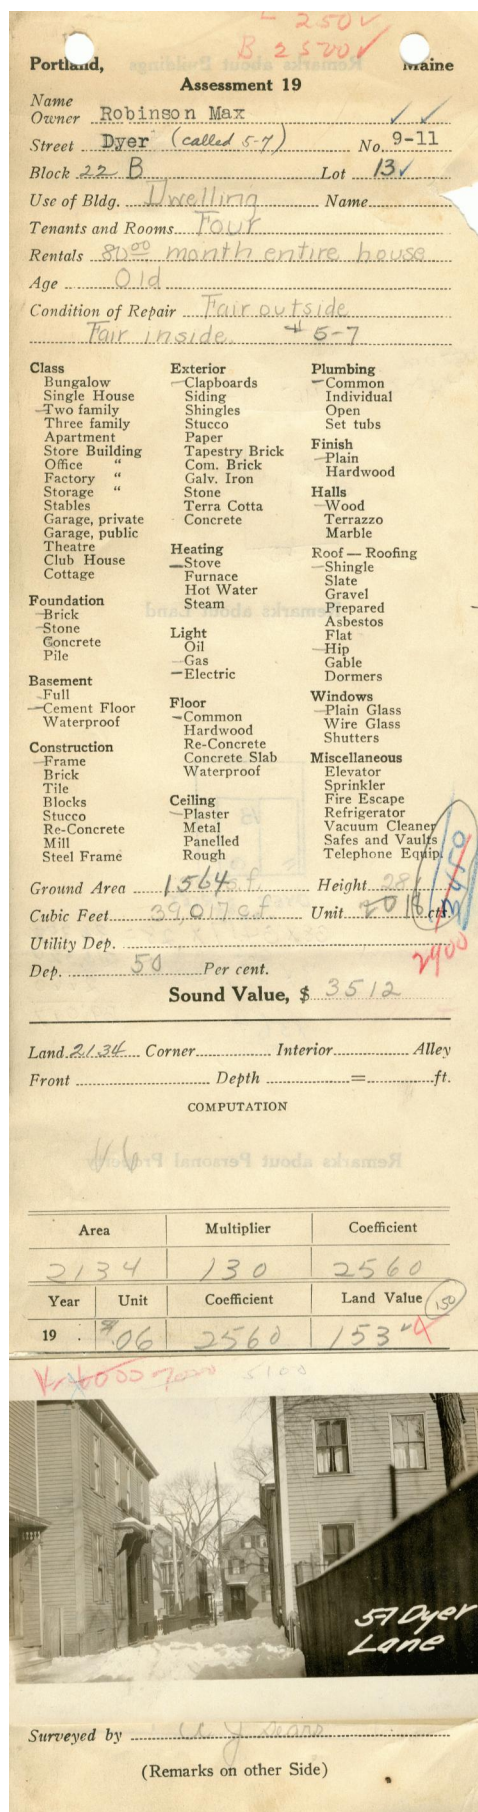 L 250 ✓
B. 2500 ✓
Portland, Maine
Assessment 19
Name
Owner Robinson Max
Street Dyer (called 5-7) No. 9-11
Block 22 B Lot 13
Use of Bldg. Dwelling Name
Tenants and Rooms Four
Rentals 80.00 month entire house
Age Old
Condition of Repair Fair outside
Fair inside 5-7
Class
Bungalow
Single House
Two family
Three family
Apartment
Store Building
Office "
Factory "
Storage "
Stables
Garage, private
Garage, public
Theatre
Club House
Cottage
Foundation
Brick
Stone
Concrete
Pile
Basement
Full
Cement Floor
Waterproof
Construction
Frame
Brick
Tile
Blocks
Stucco
Re-Concrete
Mill
Steel Frame
Exterior
Clapboards
Siding
Shingles
Stucco
Paper
Tapestry Brick
Com. Brick
Galv. Iron
Stone
Terra Cotta
Concrete
Heating
Stove
Furnace
Hot Water
Steam
Light
Oil
Gas
Electric
Floor
Common
Hardwood
Re-Concrete
Concrete Slab
Waterproof
Ceiling
Plaster
Metal
Panelled
Rough
Plumbing
Common
Individual
Open
Set tubs
Finish
Plain
Hardwood
Halls
Wood
Terrazzo
Marble
Roof — Roofing
Shingle
Slate
Gravel
Prepared
Asbestos
Flat
Hip
Gable
Dormers
Windows
Plain Glass
Wire Glass
Shutters
Miscellaneous
Elevator
Sprinkler
Fire Escape
Refrigerator
Vacuum Cleaner
Safes and Vaults
Telephone Equip.
3450
Ground Area 1564 s.f. Height 28
Cubic Feet 39,017 c.f. Unit 18 cts.
Utility Dep.
2900
Dep. 50 Per cent.
Sound Value, $ 3512
Land 2134 Corner Interior Alley
Front Depth = ft.
COMPUTATION
Area Multiplier Coefficient
2134 130 2560
Year Unit Coefficient Land Value 150
19 .06 2560 153
5100
5-7 Dyer
Lane
Surveyed by Sears
(Remarks on other Side)